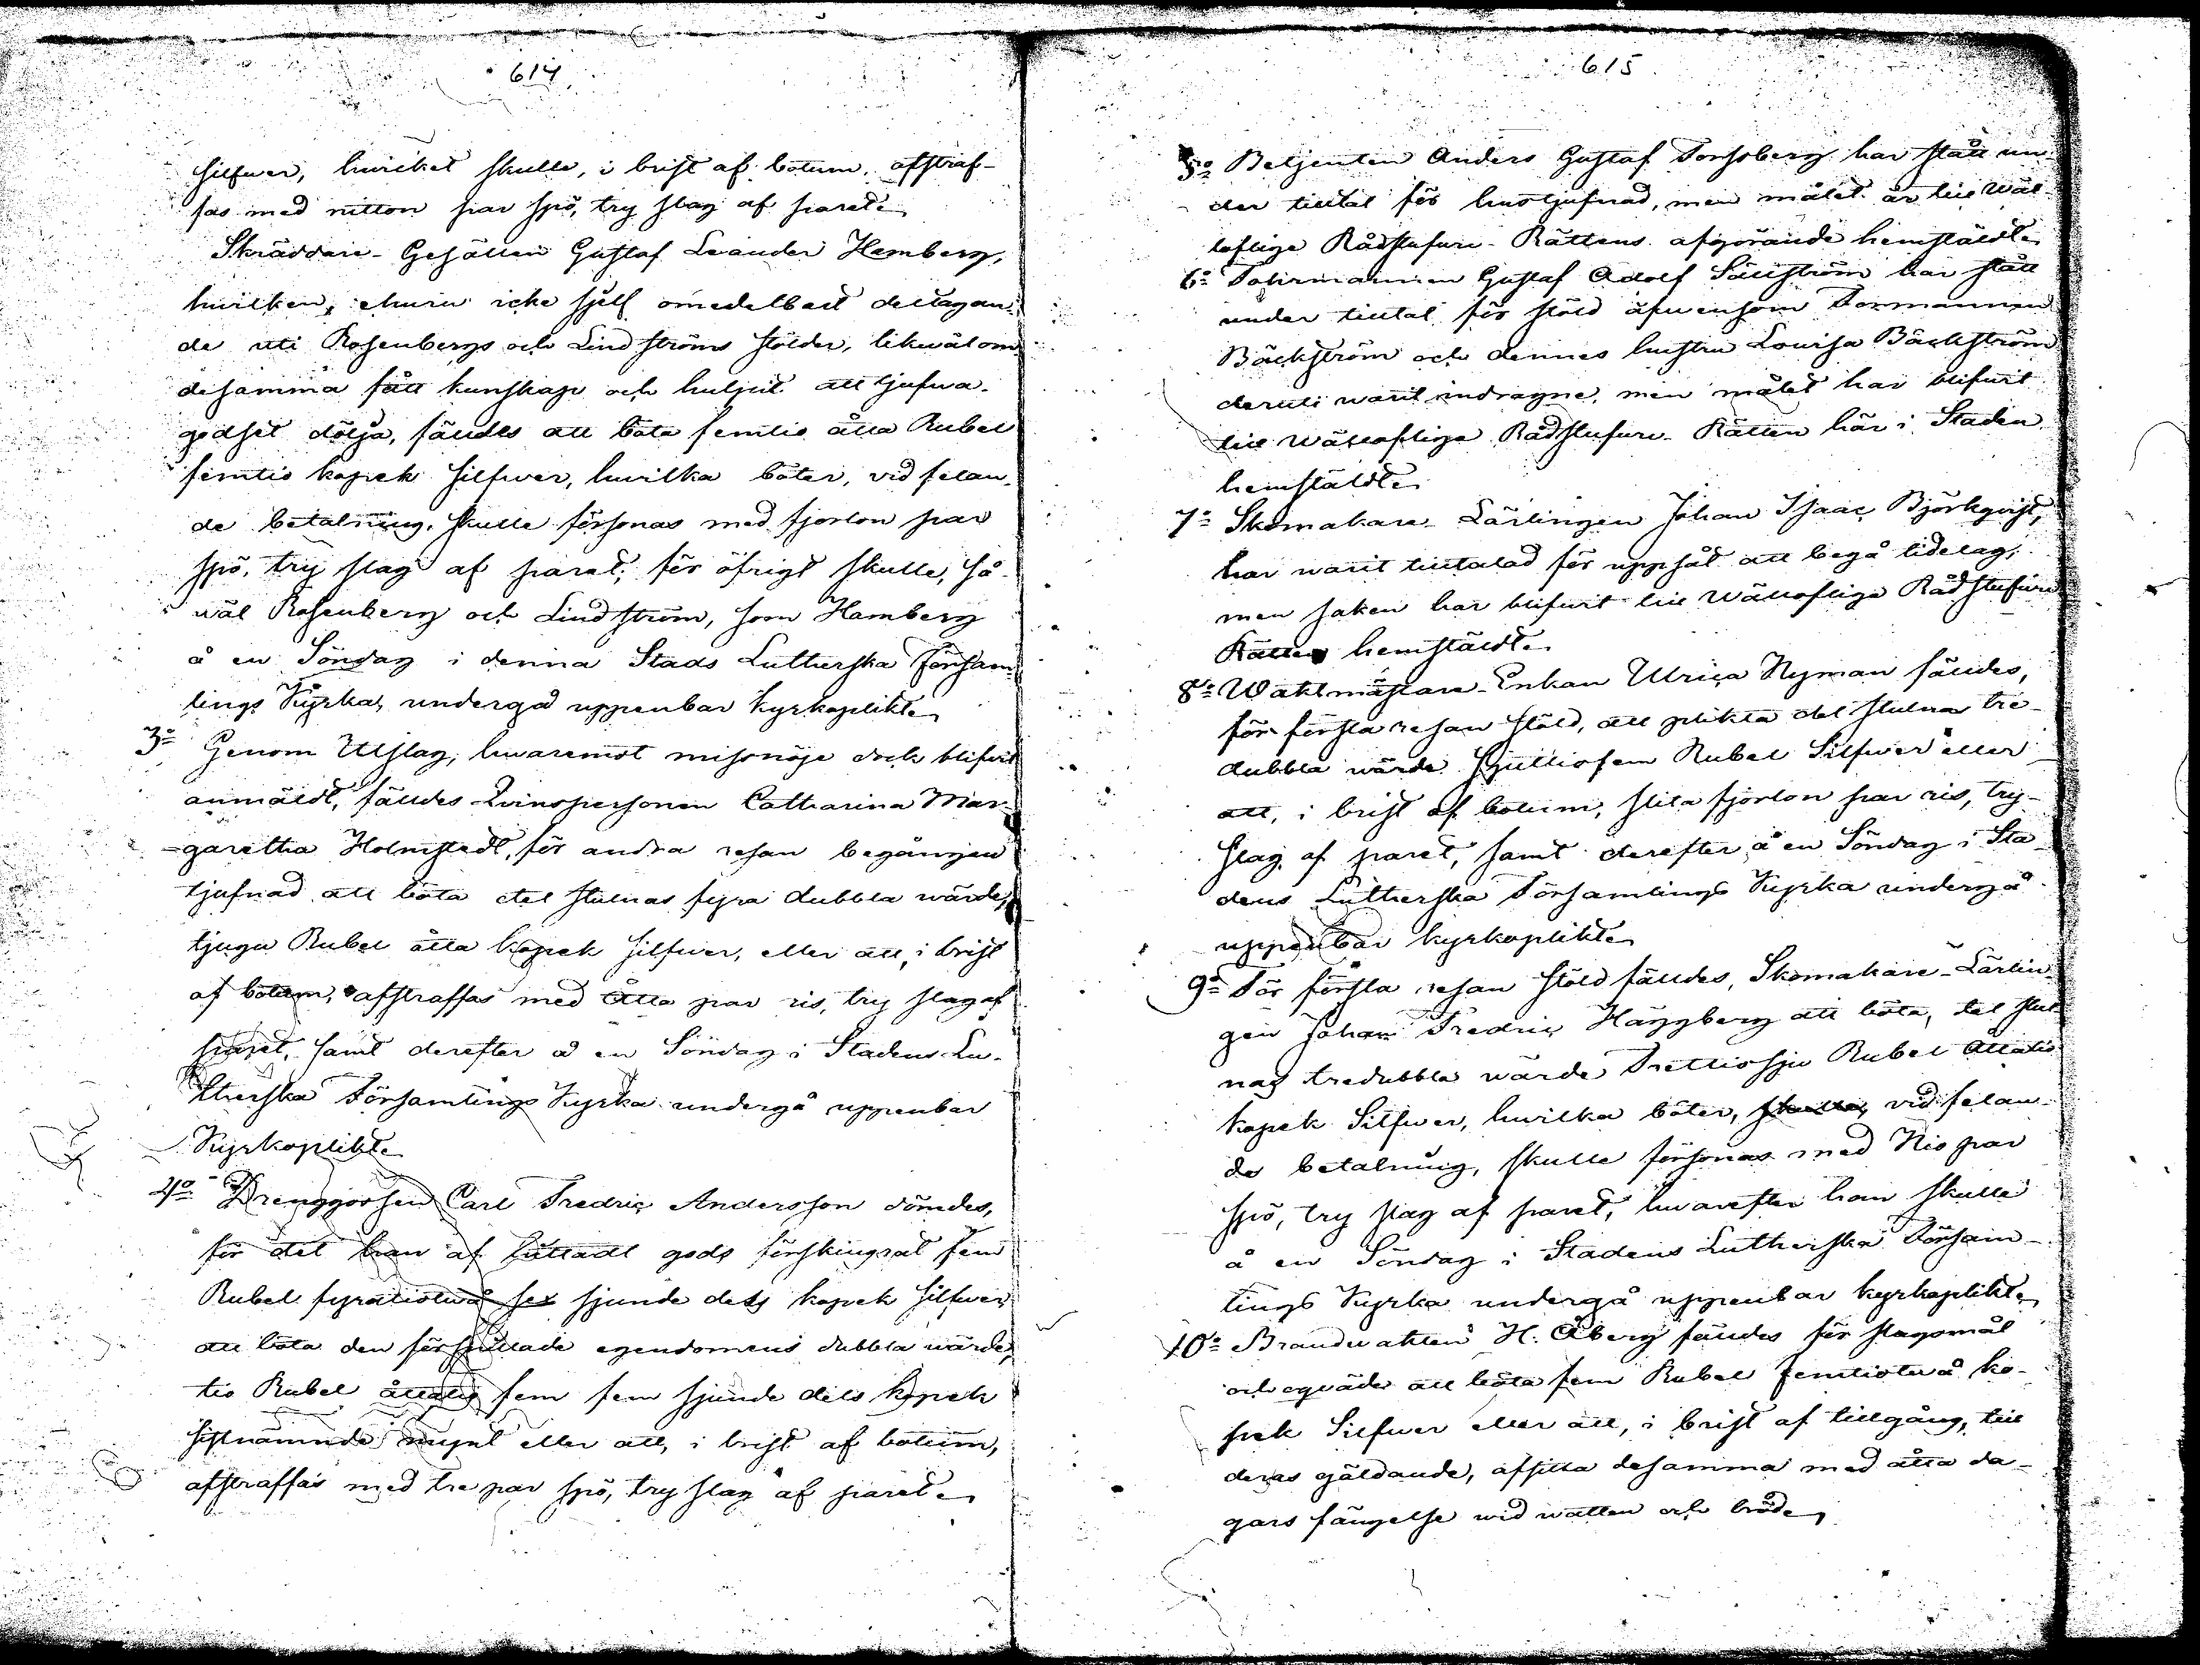 614
silfwer, hwilket skulle, i brist af botum, afstraf-
fas med nitton par spö, try slag af paret.
Skräddare-Gesällen Gustaf Leander Hamberg,
hwilken, ehuru icke sjelf omedelbart deltagan-
de uti Rosenbergs och Lindströms stölder, likwäl om
desamma fått kunskap och hulpit att tjufwa-
godset dölja, fälldes att böta femtio åtta Rubel
femtio kopek silfwer, hwilka böter, vid felan-
de betalning, skulle försonas med fjorton par
spö, try slag af paret; för öfrigt skulle, så-
wäl Rosenberg och Lindström, som Hamberg
å en Söndag i denna Stads Lutherska Försam-
lings Kyrka, undergå uppenbar kyrkoplikt.
3o Genom Utslag, hwaremot missnöje dock blifwit
anmäldt, fälldes Qvinspersonen Catharina Mar-
garetha Holmstedt, för andra resan begången
tjufnad att böta det stulnas fyra dubbla wärde,
tjugu Rubel åtta kopek silfwer, eller att, i brist
af botum, afstraffas med Åtta par ris, try slag af
paret, samt derefter å en Söndag i Stadens Lu-
therska Församlings Kyrka undergå uppenbar
Kyrkoplikt.
4o Drenggossen Carl Fredric Andersson dömdes,
för det han af hittadt gods förskingrat fem
Rubel fyratiotwå sex sjunde dels kopek silfwer,
att böta den förskillade egendomens dubbla wärde,
tio Rubel åttatio fem fem sjunde dels kopek
sistnämnde mynt eller att, i brist af botum,
afstraffas med tre par spö, try slag af paret.
615
5o Betjenten Anders Gustaf Forssberg har stått un-
der tilltal för hustjufnad, men målet är till Wäl-
loflige Rådstufuu-Rättens afgörande hemstäldt.
6o Fohrmannen Gustaf Adolf Sällström har stått
under tilltal för stöld äfwensom Formannen
Bäckström och dennes hustru Lovisa Bäckström
deruti warit indragne, men målet har blifwit
till Wälloflige Rådstufuu-Rätten här i Staden
hemstäldt.
7o Skomakare-Lärlingen Johan Isaac Björkqvist,
har warit tilltalad för uppsåt att begå tidelag,
men saken har blifwit till Wälloflige Rådstufuu
Rätten hemstäldt.
8o Waktmästare-Enkan Ulrica Nyman fälldes,
för första resan stöld, att plikta det stulna tre-
dubbla wärde Sjuttiofem Rubel Silfwer eller
att, i brist af botum, slita fjorton par ris, try-
slag af paret, samt derefter å en Söndag i Sta-
dens Lutherska Församlings Kyrka undergå
uppenbar kyrkoplikt.
9o För första resan stöld fälldes, Skomakare-Lärlin-
gen Johan Fredric Häggberg att böta, det stul-
nas tredubbla wärde Trettiosju Rubel Åttatio
kopek Silfwer, hwilka böter, skulle, vid felan-
de betalning, skulle försonas med Nio par
spö, try slag af paret, hwarefter han skulle
å en Söndag i Stadens Lutherska Försam-
lings Kyrka undergå uppenbar kyrkoplikt.
10o Brandwakten H. Åberg fälldes för slagsmål
och oqväde att böta fem Rubel femtiotwå ko-
pek Silfwer eller att, i brist af tillgång, till
deras gäldande, afsitta desamma med åtta da-
gars fängelse wid watten och bröd.